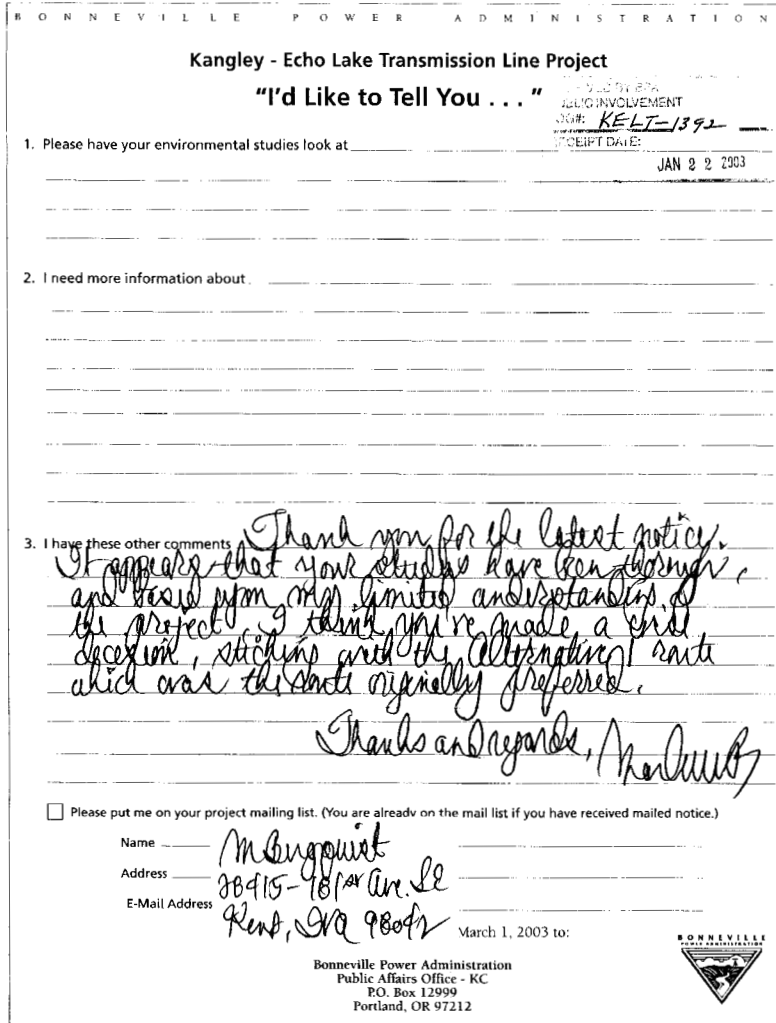 BONNEVILLE POWER ADMINISTRATION
Kangley - Echo Lake Transmission Line Project
"I'd Like to Tell You . . . "
PUBLIC INVOLVEMENT
KELT-1392
RECEIPT DATE:
JAN 22 2003
1. Please have your environmental studies look at
2. I need more information about
3. I have these other comments Thank you for the latest notice.
It appears that your studies have been thorough,
and based upon my limited understanding of
the project, I think you've made a wise
decesion, sticking with the Alternative 1 route
which was the route originally preferred.
Thanks and regards,
Please put me on your project mailing list. (You are already on the mail list if you have received mailed notice.)
Name M Bergquist
Address 28415-181st Ave. SE
E-Mail Address Kent, WA 98042
March 1, 2003 to:
BONNEVILLE
POWER ADMINISTRATION
Bonneville Power Administration
Public Affairs Office - KC
P.O. Box 12999
Portland, OR 97212